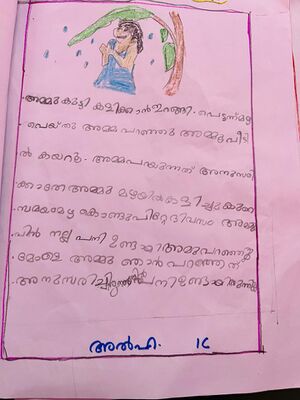 അമ്മുകുട്ടി കളിക്കാൻ ഇറങ്ങി. പെട്ടന്ന് മഴ
പെയ്തു അമ്മ പറഞ്ഞു അമ്മു വീട്ടി
ൽ കയറൂ. അമ്മ പറയുന്നത് അനുസരി
ക്കാതേ അമ്മു മഴയിൽ കളിച്ചു കുറെ
സമയം മഴ കൊണ്ടു പിറ്റേ ദിവസം അമ്മു
വിന് നല്ല പനി ഉണ്ടായി അമ്മ പറഞ്ഞു
മോളെ അമ്മു ഞാൻ പറഞ്ഞത്
അനുസരിച്ചിരുന്നെങ്കിൽ പനി ഉണ്ടായിരുന്നി
അൽഫി. 1C